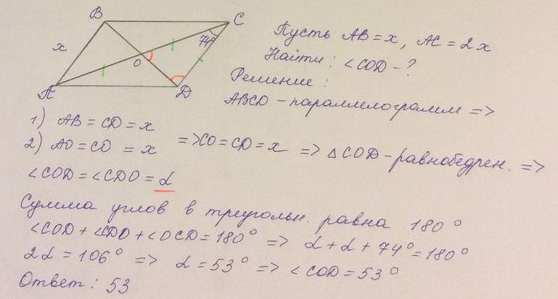 B
C
x
74°
O
A
D
Пусть AB = x, AC = 2x
Найти: ∠COD - ?
Решение:
ABCD - параллелограмм =>
1) AB = CD = x
2) AO = CO = x => CO = CD = x => △COD - равнобедрен. =>
∠COD = ∠CDO = α
Сумма углов в треугольн. равна 180°
∠COD + ∠CDO + ∠OCD = 180° => α + α + 74° = 180°
2α = 106° => α = 53° => ∠COD = 53°
Ответ: 53